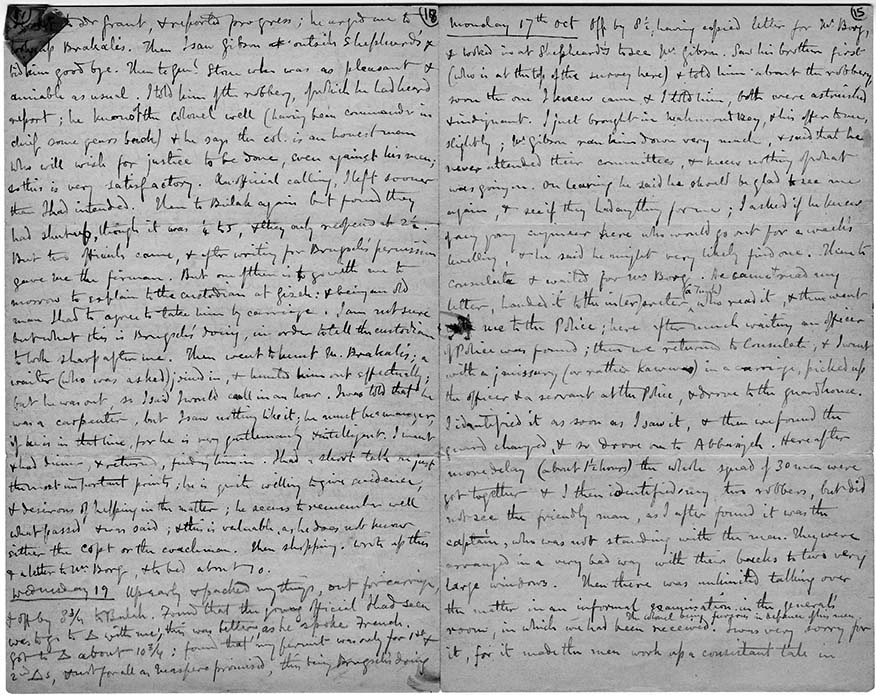 18
to Dr Grant, & reported progress; he urged me to
Brakales. Then I saw Gibson outside Shepheard's &
bid him good bye. Then to Genl Stone who was as pleasant &
amiable as usual. I told him of the robbery, of which he had heard
report; he knows the Colonel well (having been commander in
chief some years back) & he says the col. is an honest man
who will wish for justice to be done, even against his men;
so this is very satisfactory. An official calling, I left sooner
than I had intended. Then to Bulak again but found they
had shut up, though it was ¼ to 3, & they only reopened at 2½.
But two officials came, & after writing for Brugsch's permission
gave me the firman. But one of them is to go with me to
morrow to explain to the custodian at Gizeh: & being an old
man I had to agree to take him by carriage. I am not sure
but what this is Brugsch's doing, in order to tell the custodian
to look sharp after me. Then went to hunt Mr. Brakales; a
waiter (who was asked) joined in, & hunted him out effectually;
but he was out, so I said I would call in an hour. I was told that he
was a carpenter, but I saw nothing like it; he must be a manager,
if he is in that line, for he is very gentlemanly & intelligent. I went
& had dinner, & returned, finding him in. I had a short talk
the most important points; he is quite willing to give evidence,
& desirous of helping in the matter; he seems to remember well
what passed & was said; & this is valuable as he does not know
either the Copt or the coachman. Then shopping. Wrote up this
& a letter to Mr Borg, & to bed about 10.
Wednesday 19 Up early & packed my things, out for carriage,
& off by 8¾ to Bulak. Found that the young official I had seen
was to go to Δ with me; this was better, as he spoke French.
Got to Δ about 10¾; found that my permit was only for 1st &
2nd Δs, & not for all as Maspero promised, this being Brugsch's doing
15
Monday 17th Oct Off by 8½, having copied letter for Mr Borg,
& looked in at Shepheard's to see Mr. Gibson. Saw his brother first
(who is at the top of the survey here) & told him about the robbery,
soon the one I knew came & I told him, both were astonished
& indignant. I just brought in Mahmoud Bey, & his offer to me,
slightly; Mr Gibson ran him down very much, & said that he
never attended their committees, & knew nothing of what
was going on. On leaving he said he should be glad to see me
again, & see if they had anything for me; I asked if he knew
of any young engineer here who would go out for a week's
levelling, & he said he might very likely find one. Then to
Consulate & waited for Mr Borg. he came & read my
letter, handed it to the interpreter, (a Turk) who read it, & then went
with me to the Police; here after much waiting an officer
of Police was found; then we returned to Consulate, & I went
with a janissary (or rather kawass) in a carriage, picked up
the officer & a servant at the Police, & drove to the guardhouse.
I identified it as soon as I saw it, & then we found the
guard changed, & so drove on to Abbasiyeh. Here after
more delay (about 1½ hours) the whole squad of 30 men were
got together & I then identified my two robbers, but did
not see the friendly man, as I after found it was the
captain, who was not standing with the men. They were
arranged in a very bad way with their backs to two very
large windows. Then there was unlimited talking over
the matter in an informal examination in the general's
room, in which we had been received. The colonel being furious in defence of his men, I was very sorry for
it, for it made the men work up a consistant tale in